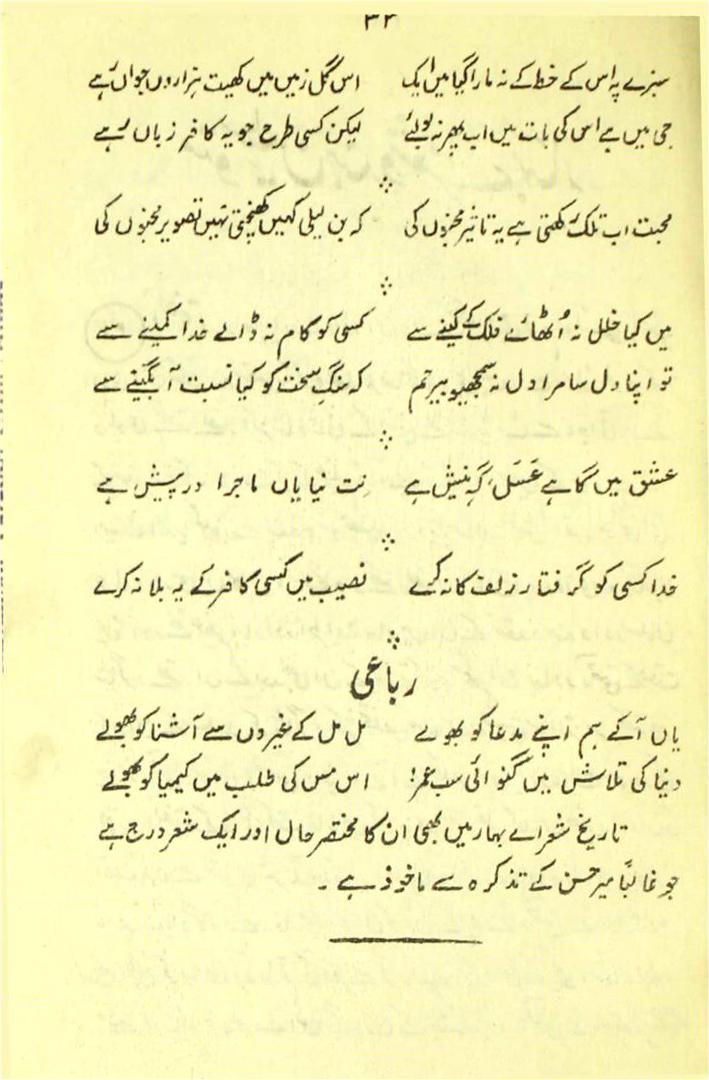 ۳۲
سبزے پہ اس کے خط کے نہ مارا گیا میں ایک اس گل زمیں میں کھیت ہزاروں جواں رہے
جی میں ہے اس کی بات میں اب پھر نہ بولئے لیکن کسی طرح جو یہ کافر زباں رہے
محبت اب تلک رکھتی ہے یہ تاثیر مجنوں کی کہ بن لیلی کہیں کھنچتی نہیں تصویر مجنوں کی
میں کیا خلل نہ اُٹھائے فلک کے کینے سے کسی کو کام نہ ڈالے خدا کمینے سے
تو اپنا دل سا مرا دل نہ سمجھیو بیرحم کہ سنگِ سخت کو کیا نسبت آبگینے سے
عشق میں گاہے عَسَل گہِ نیش ہے نِت نیا یاں ماجرا درپیش ہے
خدا کسی کو گرفتار زلف کا نہ کرے نصیب میں کسی کافر کے یہ بلا نہ کرے
رباعی
یاں آکے ہم اپنے مدعا کو بھولے مل مل کے غیروں سے آشنا کو بھولے
دنیا کی تلاش میں گنوائی سب عمر! اس مس کی طلب میں کیمیا کو بھولے
تاریخ شعراے بہار میں بھی ان کا مختصر حال اور ایک شعر درج ہے
جو غالباً میر حسن کے تذکرہ سے ماخوذ ہے ۔